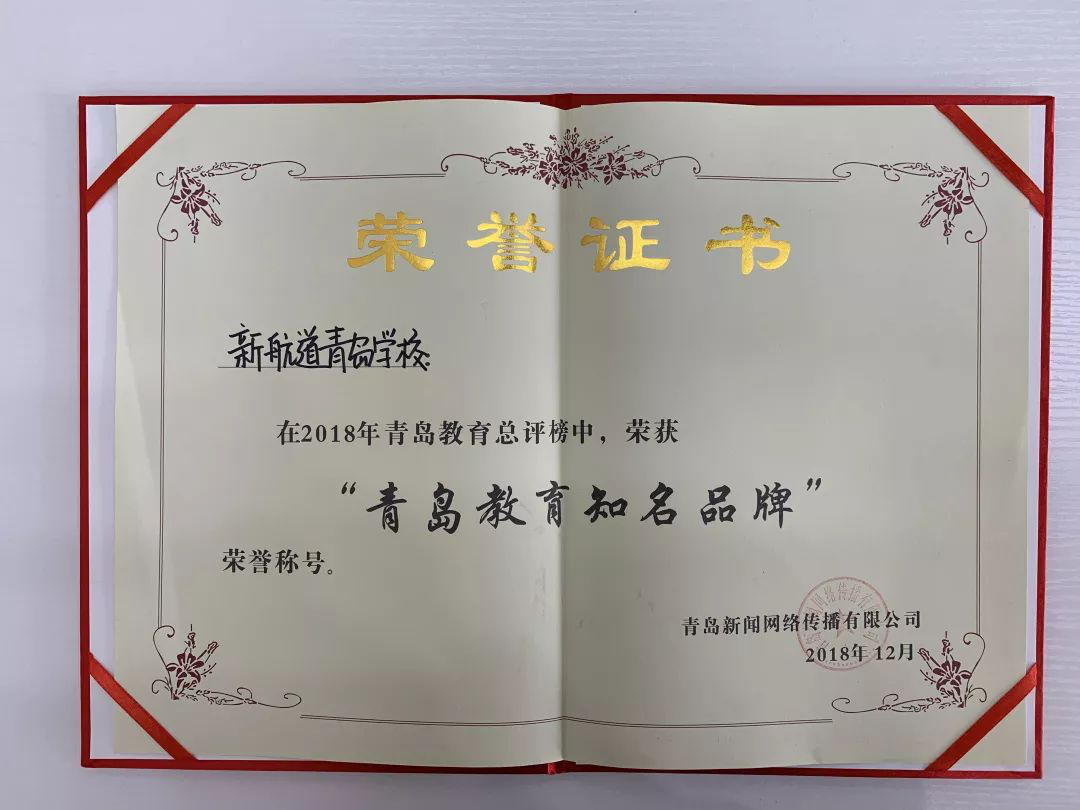 荣誉证书
新航道青岛学校:
在2018年青岛教育总评榜中，荣获
“青岛教育知名品牌”
荣誉称号。
青岛新闻网络传播有限公司
2018年12月